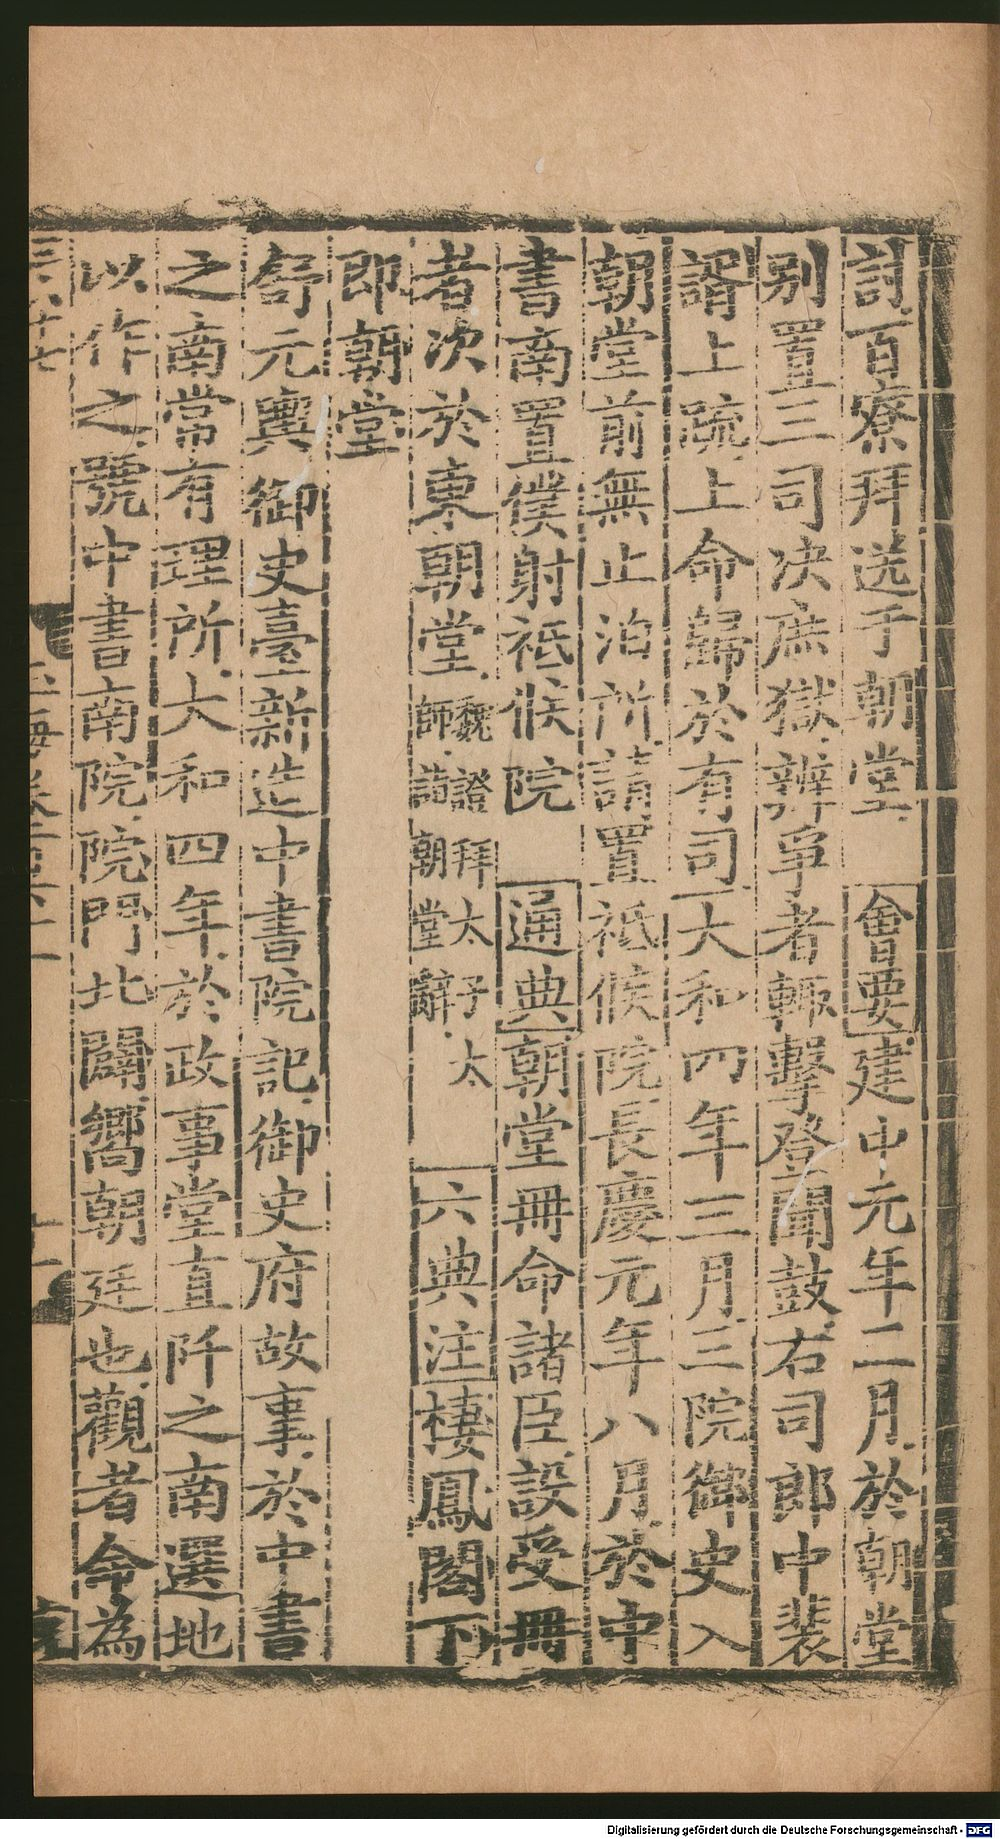 討百寮拜送于朝堂會要建中元年二月於朝堂
别置三司决庶獄辨爭者輒擊登聞鼓右司郎中裴
諝上疏上命歸於有司大和四年三月三院御史入
朝堂前無止泊所請置祗候院長慶元年八月於中
書南置僕射祗候院通典朝堂冊命諸臣設受冊
者次於東朝堂魏證拜太子太
師詣朝堂辭六典注棲鳳閣下
即朝堂
舒元輿御史臺新造中書院記御史府故事於中書
之南常有理所大和四年於政事堂直阡之南選地
以作之號中書南院院門北闢嚮朝廷也觀者令為
Digitalisierung gefördert durch die Deutsche Forschungsgemeinschaft - DFG